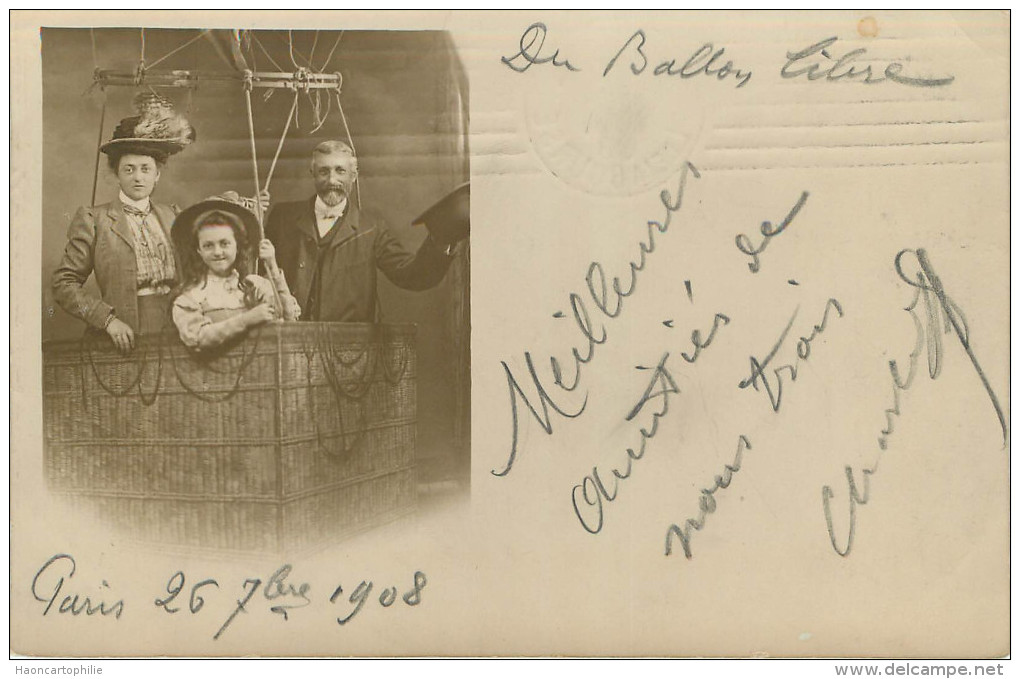 Du Ballon libre
Meilleures
amitiés de
nous trois
Paris 26 7bre 1908
Haoncartophilie
www.delcampe.net